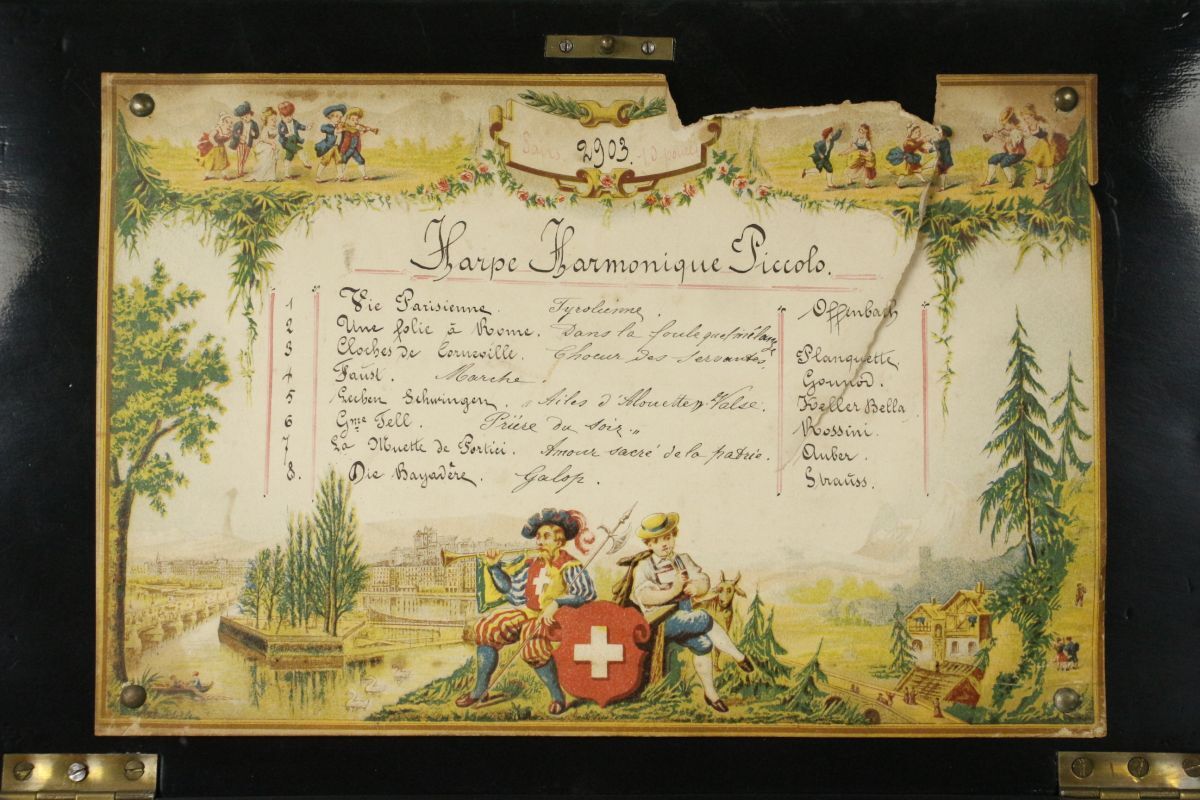 2903.
Harpe Harmonique Piccolo.
1 Vie Parisienne. Tyrolienne. Offenbach
2 Une folie à Rome. Dans la foule
3 Cloches de Corneville. Choeur des servantes. Planquette
4 Faust. Marche. Gounod.
5 Lerchen Schwingen. „Ailes d'Alouette„ Valse. Keller Bella
6 Gme Tell. Prière du soir „ Rossini.
7 La Muette de Portici. Amour sacré de la patrie. Auber.
8. Die Bayadère. Galop. Strauss.